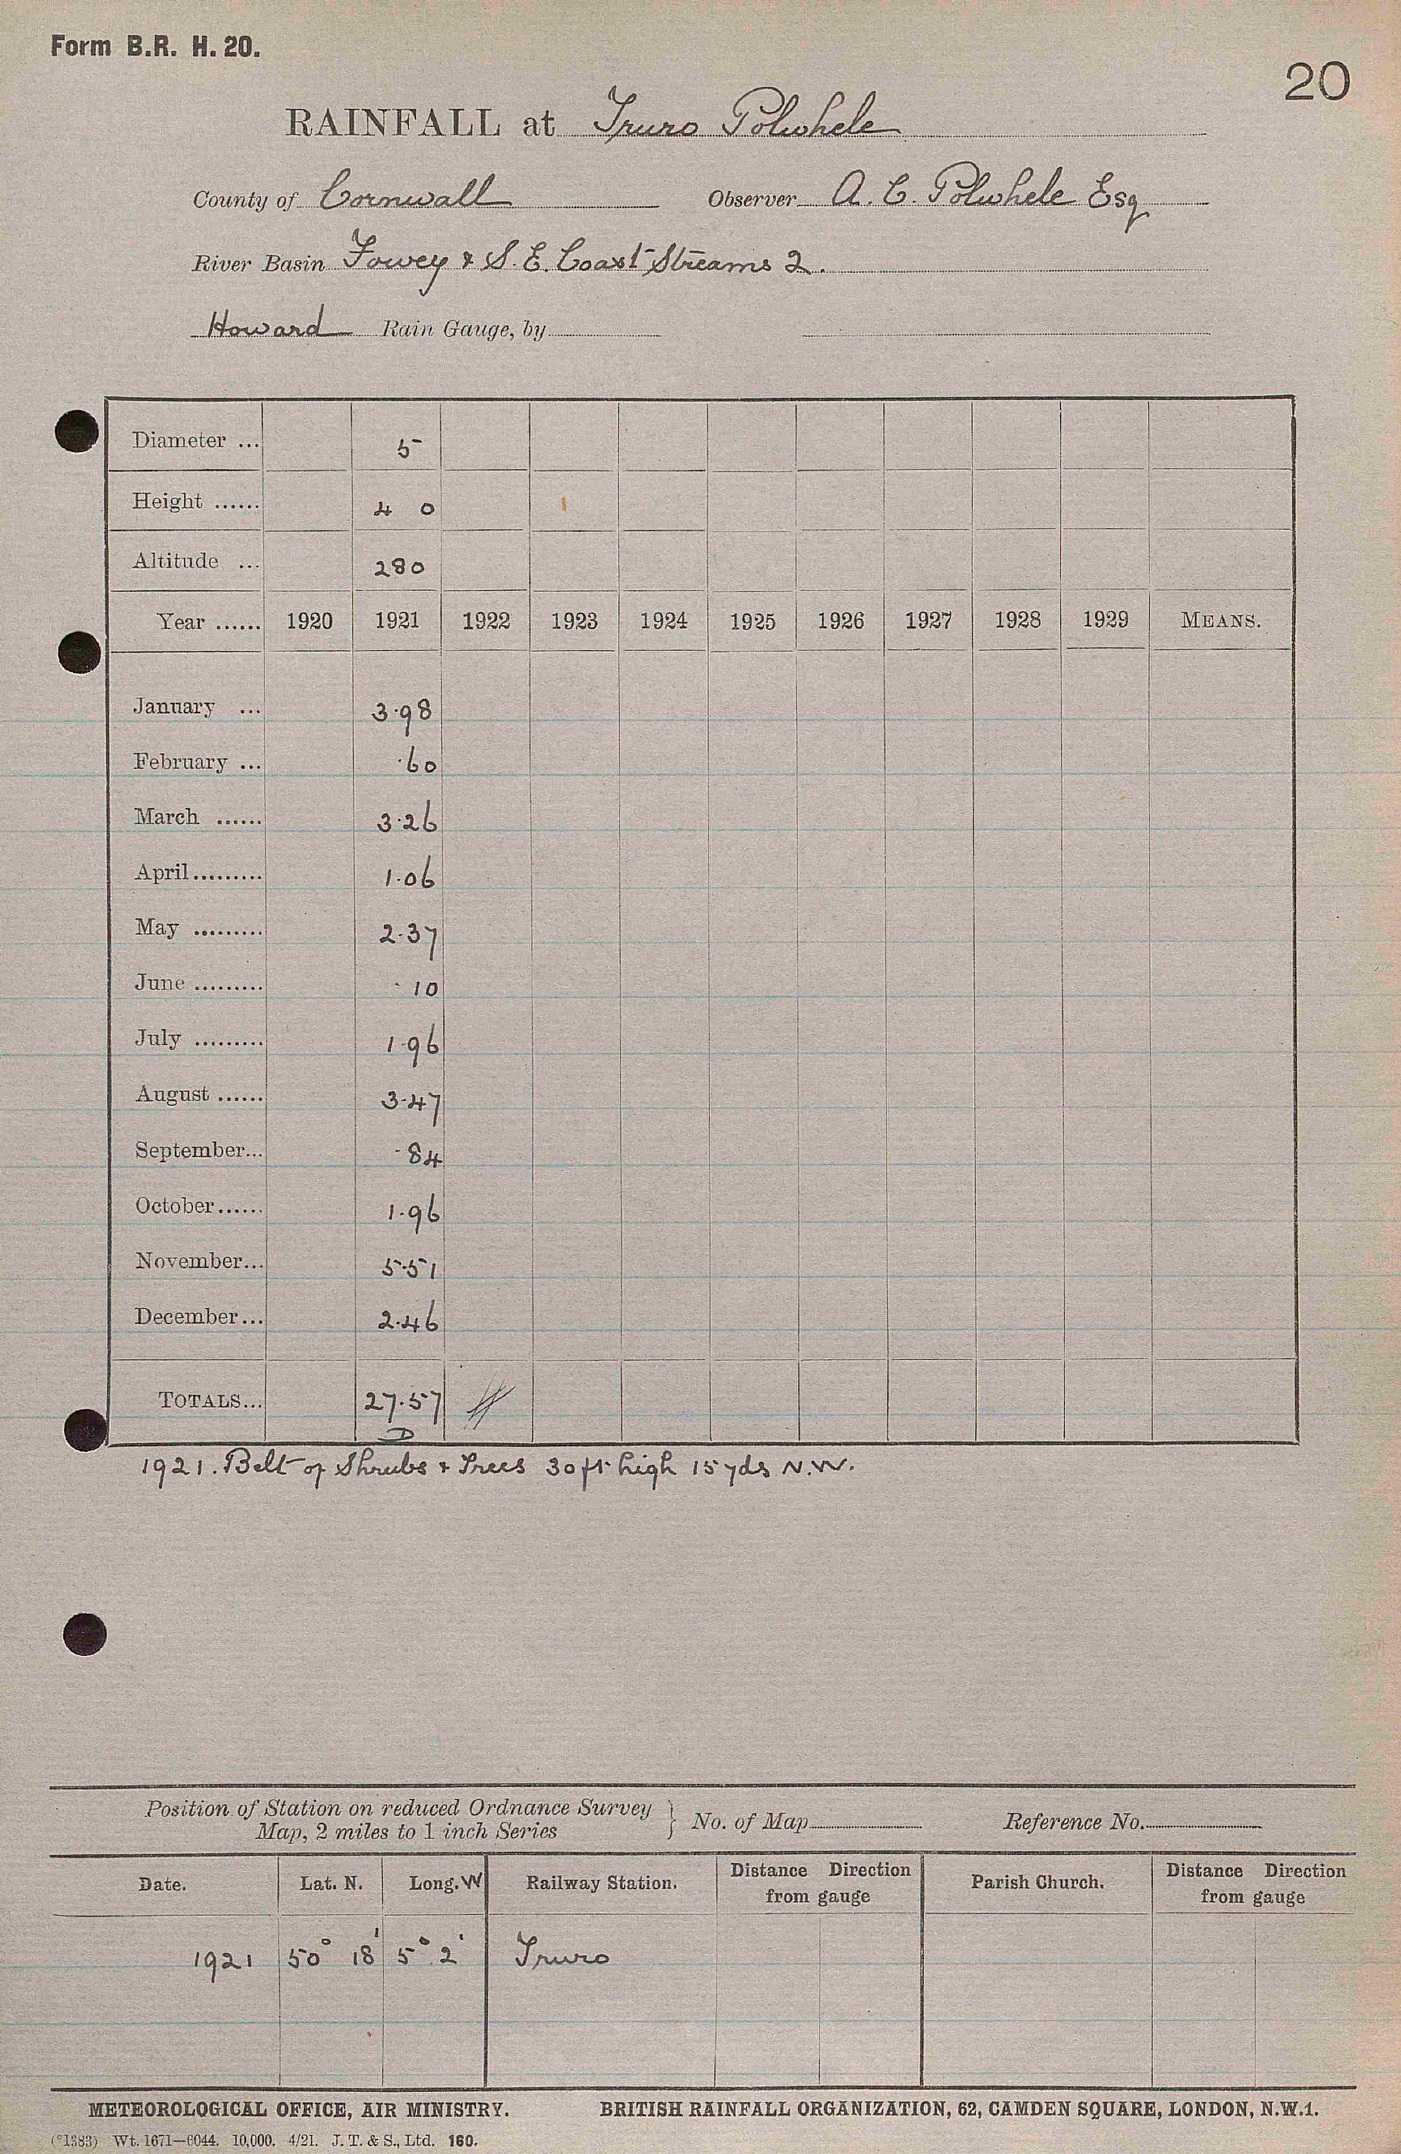 Form B.R. H. 20.
20
RAINFALL at Truro Polwhele
County of Cornwall Observer A. C. Polwhele Esq
River Basin Fowey & S. E. Coast Streams 2.
Howard Rain Gauge, by
Diameter ... 5
Height ...... 4 0
Altitude ... 280
Year ...... 1920 1921 1922 1923 1924 1925 1926 1927 1928 1929 MEANS.
January ... 3.98
February ... .60
March ...... 3.26
April......... 1.06
May ......... 2.37
June ......... .10
July ......... 1.96
August ...... 3.47
September... .84
October...... 1.96
November... 5.51
December... 2.46
TOTALS... 27.57
D
1921. Belt of Shrubs & Trees 30 ft. high 15 yds N.W.
Position of Station on reduced Ordnance Survey
Map, 2 miles to 1 inch Series } No. of Map Reference No.
Date. Lat. N. Long. W Railway Station. Distance Direction from gauge Parish Church. Distance Direction from gauge
1921 50° 18' 5° 2' Truro
METEOROLOGICAL OFFICE, AIR MINISTRY. BRITISH RAINFALL ORGANIZATION, 62, CAMDEN SQUARE, LONDON, N.W.1.
(*1383) Wt. 1671—6044. 10,000. 4/21. J. T. & S., Ltd. 160.